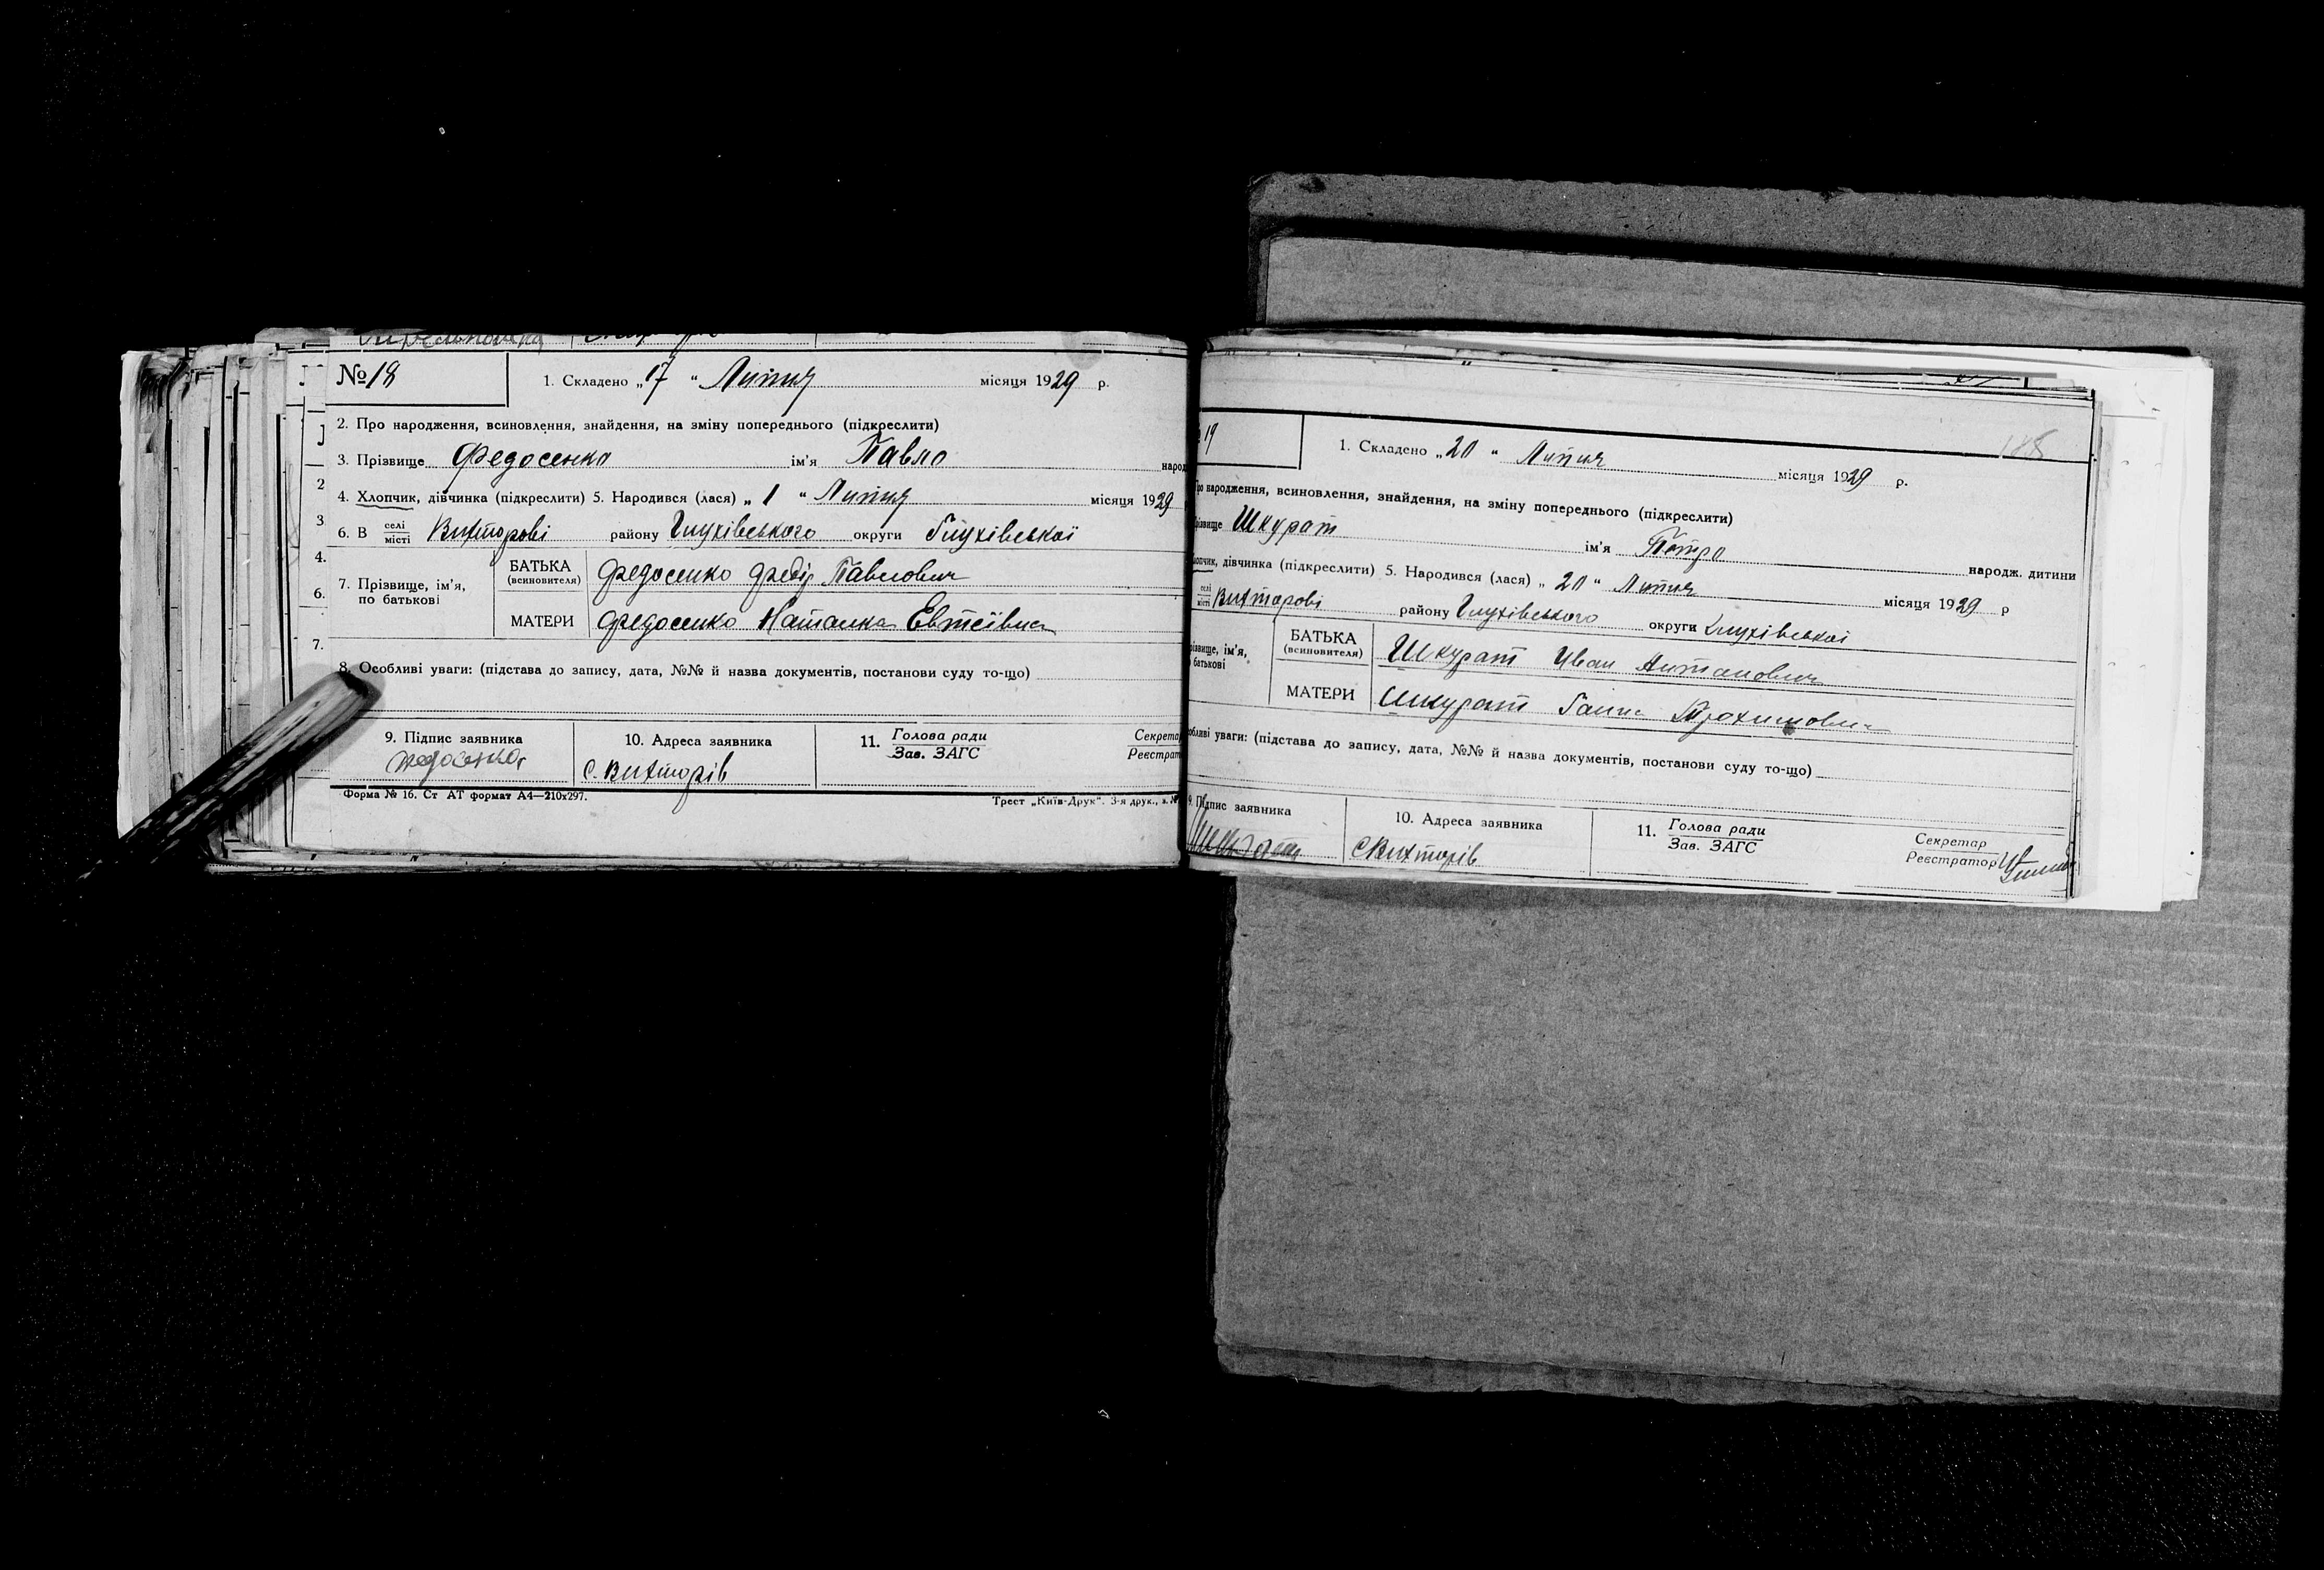 № 18
1. Складено „17“ Липня місяця 1929 р.
2. Про народження, всиновлення, знайдення, на зміну попереднього (підкреслити)
3. Прізвище Федосенко ім'я Павло народ
4. Хлопчик, дівчинка (підкреслити) 5. Народився (лася) „1“ Липня місяця 1929
6. В селі місті Вихторові району Глухівського округи Глухівської
7. Прізвище, ім'я, по батькові
БАТЬКА (всиновителя) Федосенко Федір Павлович
МАТЕРИ Федосенко Наталка Евтеївна
8. Особливі уваги: (підстава до запису, дата, №№ й назва документів, постанови суду то-що)
9. Підпис заявника
Федосенко
10. Адреса заявника
с. Вихторів
11. Голова ради
Зав. ЗАГС
Секрета
Реєстрат
Форма № 16. Ст АТ формат А4—210х297.
Трест „Київ-Друк“. 3-я друк., з. №
19
188
1. Складено „20“ Липня місяця 1929 р.
народження, всиновлення, знайдення, на зміну попереднього (підкреслити)
Шкурат ім'я Петро народж. дитини
дівчинка (підкреслити) 5. Народився (лася) „20“ Липня місяця 1929 р
селі місті Вихторові району Глухівського округи Глухівської
ім'я,
батькові
БАТЬКА (всиновителя) Шкурат Иван Антанович
МАТЕРИ Шкурат Ганна Трохимовна
уваги: (підстава до запису, дата, №№ й назва документів, постанови суду то-що)
9. Підпис заявника
Шкурат
10. Адреса заявника
с Вихторів
11. Голова ради
Зав. ЗАГС
Секретар
Реєстратор